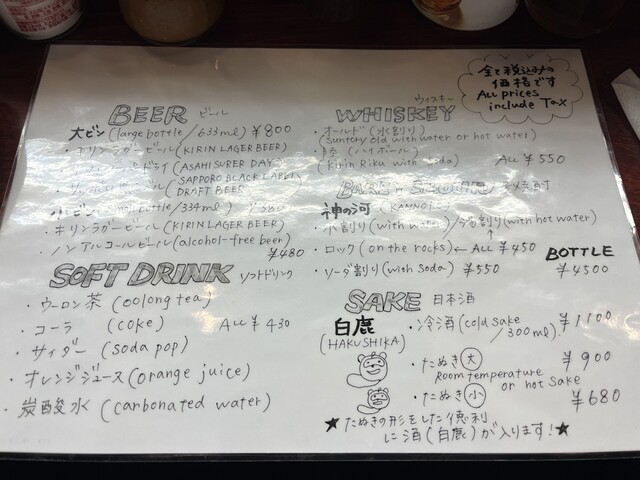 全て税込みの
価格です
All prices
include Tax
BEER ビール
大ビン (large bottle/633ml) ¥800
・キリンラガービール (KIRIN LAGER BEER)
ドライ (ASAHI SUPER DAY)
SAPPORO BLACK LABEL
DRAFT BEER
小ビン bottle/334ml)
・キリンラガービール (KIRIN LAGER BEER)
・ノンアルコールビール (alcohol-free beer)
¥480
SOFT DRINK ソフトドリンク
・ウーロン茶 (oolong tea)
・コーラ (coke) All ¥430
・サイダー (soda pop)
・オレンジジュース (orange juice)
・炭酸水 (carbonated water)
WHISKEY ウィスキー
・オールド (水割り)
(suntory old with water or hot water)
・陸 (ハイボール)
(Kirin Riku with soda) All ¥550
神の河 (KANNOKO)
・水割り (with water) / (with hot water)
・ロック (on the rocks) ← All ¥450
・ソーダ割り (with soda) ¥550
BOTTLE
¥4500
SAKE 日本酒
白鹿
(HAKUSHIKA)
・冷酒 (cold sake
/300ml) ¥1100
・たぬき 大 ¥900
Room temperature
or hot sake
・たぬき 小 ¥680
★たぬきの形をした徳利
に酒 (白鹿) が入ります!★